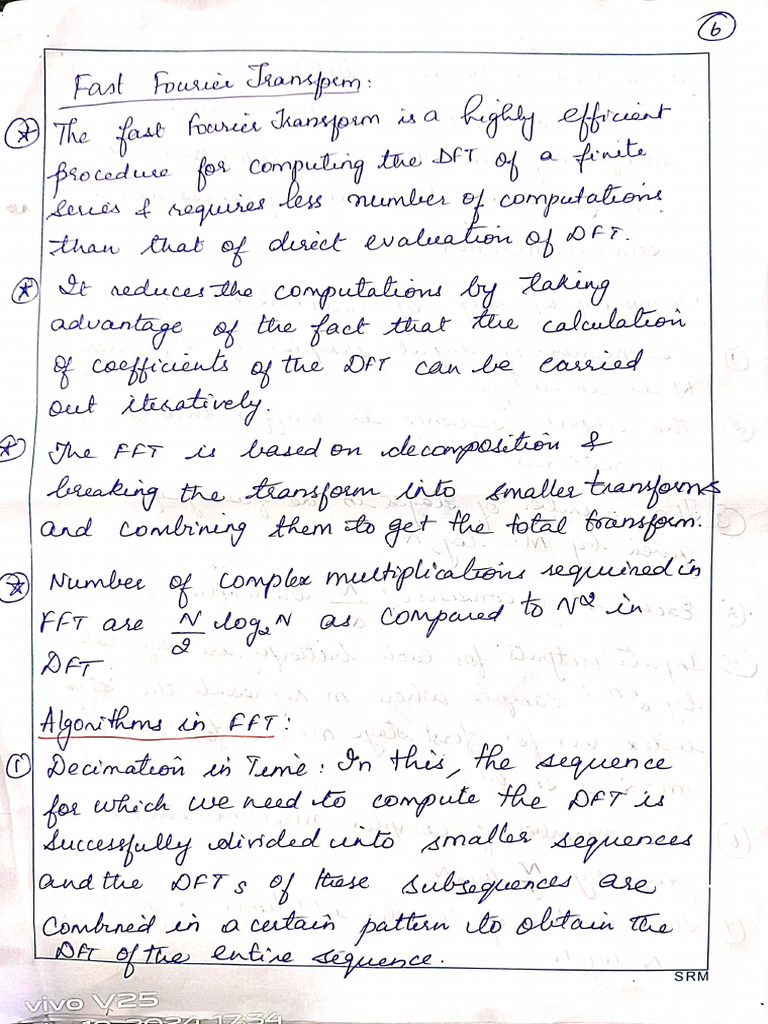 6
Fast Fourier Transform:
* The fast Fourier Transform is a highly efficient
procedure for computing the DFT of a finite
series & requires less number of computations
than that of direct evaluation of DFT.
* It reduces the computations by taking
advantage of the fact that the calculation
of coefficients of the DFT can be carried
out iteratively.
* The FFT is based on decomposition &
breaking the transform into smaller transforms
and combining them to get the total transform.
* Number of complex multiplications required in
FFT are N/2 log₂N as compared to N² in
DFT
Algorithms in FFT:
① Decimation in Time: In this, the sequence
for which we need to compute the DFT is
successfully divided into smaller sequences
and the DFTs of these subsequences are
combined in a certain pattern to obtain the
DFT of the entire sequence.
SRM
vivo V25
2024 17:34